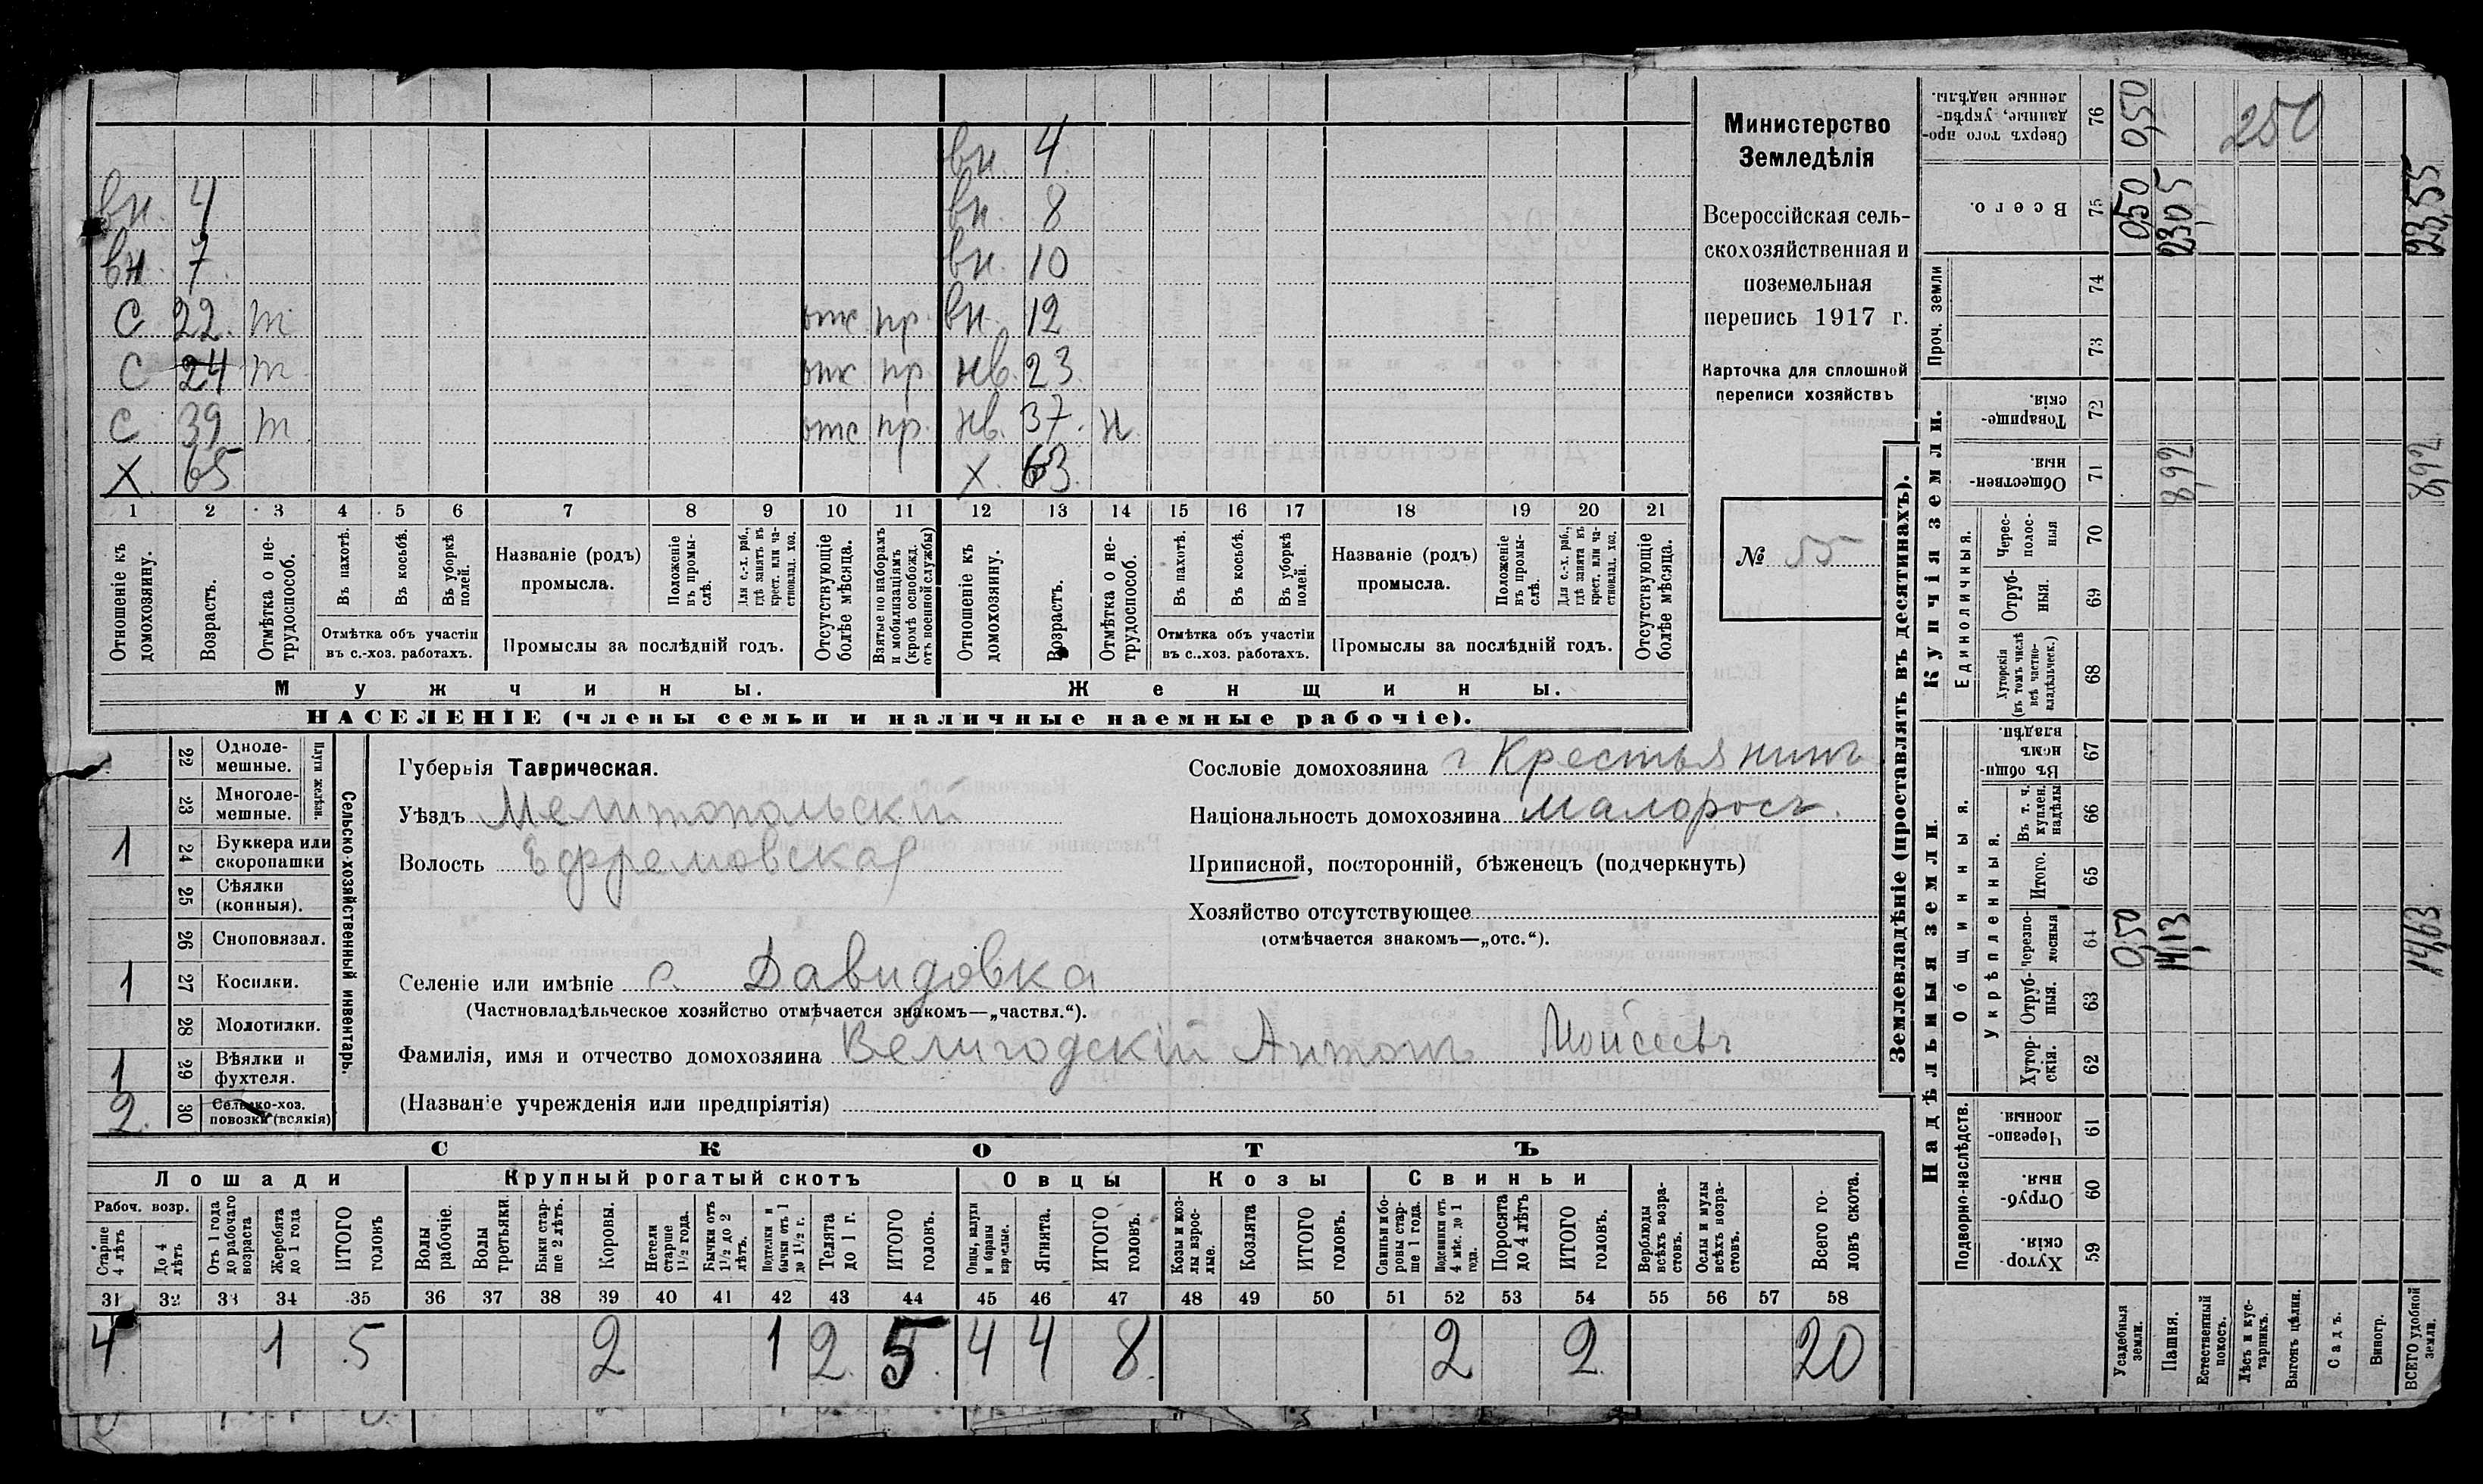 вн. 4
вн. 4 вн. 8
вн. 7 вн. 10
С 22. т отс пр. вн. 12
С 24 т отс пр нв. 23.
С 39 т отс пр. нв. 37. н.
Х. 65 Х. 63.
1 2 3 4 5 6 7 8 9 10 11 12 13 14 15 16 17 18 19 20 21
Отношеніе къ домохозяину.
Возрастъ.
Отмѣтка о не-трудоспособ.
Въ пахотѣ.
Въ косьбѣ.
Въ уборкѣ полей.
Названіе (родъ) промысла.
Положеніе въ промы-слѣ.
Для с.-х. раб., гдѣ занятъ въ крест. или ча-стновлад. хоз.
Отсутствующіе болѣе мѣсяца.
Взятые по наборамъ и мобилизаціямъ (кромѣ освобожд. отъ военной службы)
Отношеніе къ домохозяину.
Возрастъ.
Отмѣтка о не-трудоспособ.
Въ пахотѣ.
Въ косьбѣ.
Въ уборкѣ полей.
Названіе (родъ) промысла.
Положеніе въ промы-слѣ.
Для с.-х. раб., гдѣ занята въ крест. или ча-стновлад. хоз.
Отсутствующіе болѣе мѣсяца.
Отмѣтка объ участіи въ с.-хоз. работахъ.
Промыслы за послѣдній годъ.
Отмѣтка объ участіи въ с.-хоз. работахъ.
Промыслы за послѣдній годъ.
Мужчины. Женщины.
НАСЕЛЕНІЕ (члены семьи и наличные наемные рабочіе).
Министерство
Земледѣлія
Всероссійская сель-
скохозяйственная и
поземельная
перепись 1917 г.
Карточка для сплошной
переписи хозяйствъ
№ 55
Сельско-хозяйственный инвентарь.
Плуги желѣзн.
22 Одноле-мешные.
23 Многоле-мешные.
1 24 Буккера или скоропашки
25 Сѣялки (конныя).
26 Сноповязал.
1 27 Косилки.
28 Молотилки.
1 29 Вѣялки и фухтеля.
2. 30 Сельско-хоз. повозки (всякія)
Губернія Таврическая.
Уѣздъ Мелитопольскій
Волость Ефремовская
Сословіе домохозяина Крестьянинъ
Національность домохозяина малоросъ.
Приписной, посторонній, бѣженецъ (подчеркнуть)
Хозяйство отсутствующее
(отмѣчается знакомъ—„отс.“).
Селеніе или имѣніе с. Давидовка
(Частновладѣльческое хозяйство отмѣчается знакомъ—„частвл.“).
Фамилія, имя и отчество домохозяина Велигодскій Антонъ Моисеевъ
(Названіе учрежденія или предпріятія)
СКОТЪ
Лошади Крупный рогатый скотъ Овцы Козы Свиньи
Рабоч. возр.
Старше 4 лѣтъ
До 4 лѣтъ
Отъ 1 года до рабочаго возраста
Жеребята до 1 года
ИТОГО головъ
Волы рабочіе.
Волы третьяки.
Быки стар-ше 2 лѣтъ.
Коровы.
Нетели старше 1½ года.
Бычки отъ 1½ до 2 лѣтъ.
Подтелки и бычки отъ 1 до 1½ г.
Телята до 1 г.
ИТОГО головъ.
Овцы, валухи и бараны взрослые.
Ягнята.
ИТОГО головъ.
Козы и коз-лы взрос-лые.
Козлята
ИТОГО головъ.
Свиньи и бо-ровы стар-ше 1 года.
Подсвинки отъ 4 мѣс. до 1 года.
Поросята до 4 лѣтъ
ИТОГО головъ.
Верблюды всѣхъ возра-стовъ.
Ослы и мулы всѣхъ возра-стовъ.
Всего го-ловъ скота.
31 32 33 34 35 36 37 38 39 40 41 42 43 44 45 46 47 48 49 50 51 52 53 54 55 56 57 58
4 1 5 2 1 2 5 4 4 8 2 2 20
Землевладѣніе (проставлять въ десятинахъ).
Купчія земли.
Надѣльныя земли.
Сверхъ того про-данные, укрѣп-ленные надѣлы. 76 0,50 250
Всего. 75 0,50 23,05 23,55
Проч. земли 74
73
Товарище-скія. 72
Обществен-ныя. 71 8,92 8,92
Единоличныя.
Черес-полос-ныя 70
Отруб-ныя. 69
Хуторскія (въ томъ числѣ всѣ частно-владѣльческ.) 68
Общинныя.
Въ общи-номъ владѣн. 67
Укрѣпленныя.
Въ т. ч. куплен. надѣлы 66
Итого. 65
Черезпо-лосныя 64 0,50 14,13 14,63
Отруб-ныя. 63
Хутор-скія. 62
Подворно-наслѣдств.
Черезпо-лосныя. 61
Отруб-ныя. 60
Хутор-скія. 59
Усадебныя земли.
Пашня.
Естественный покосъ.
Лѣсъ и кус-тарникъ.
Выгонъ цѣлин.
Садъ.
Виногр.
ВСЕГО удобной земли.